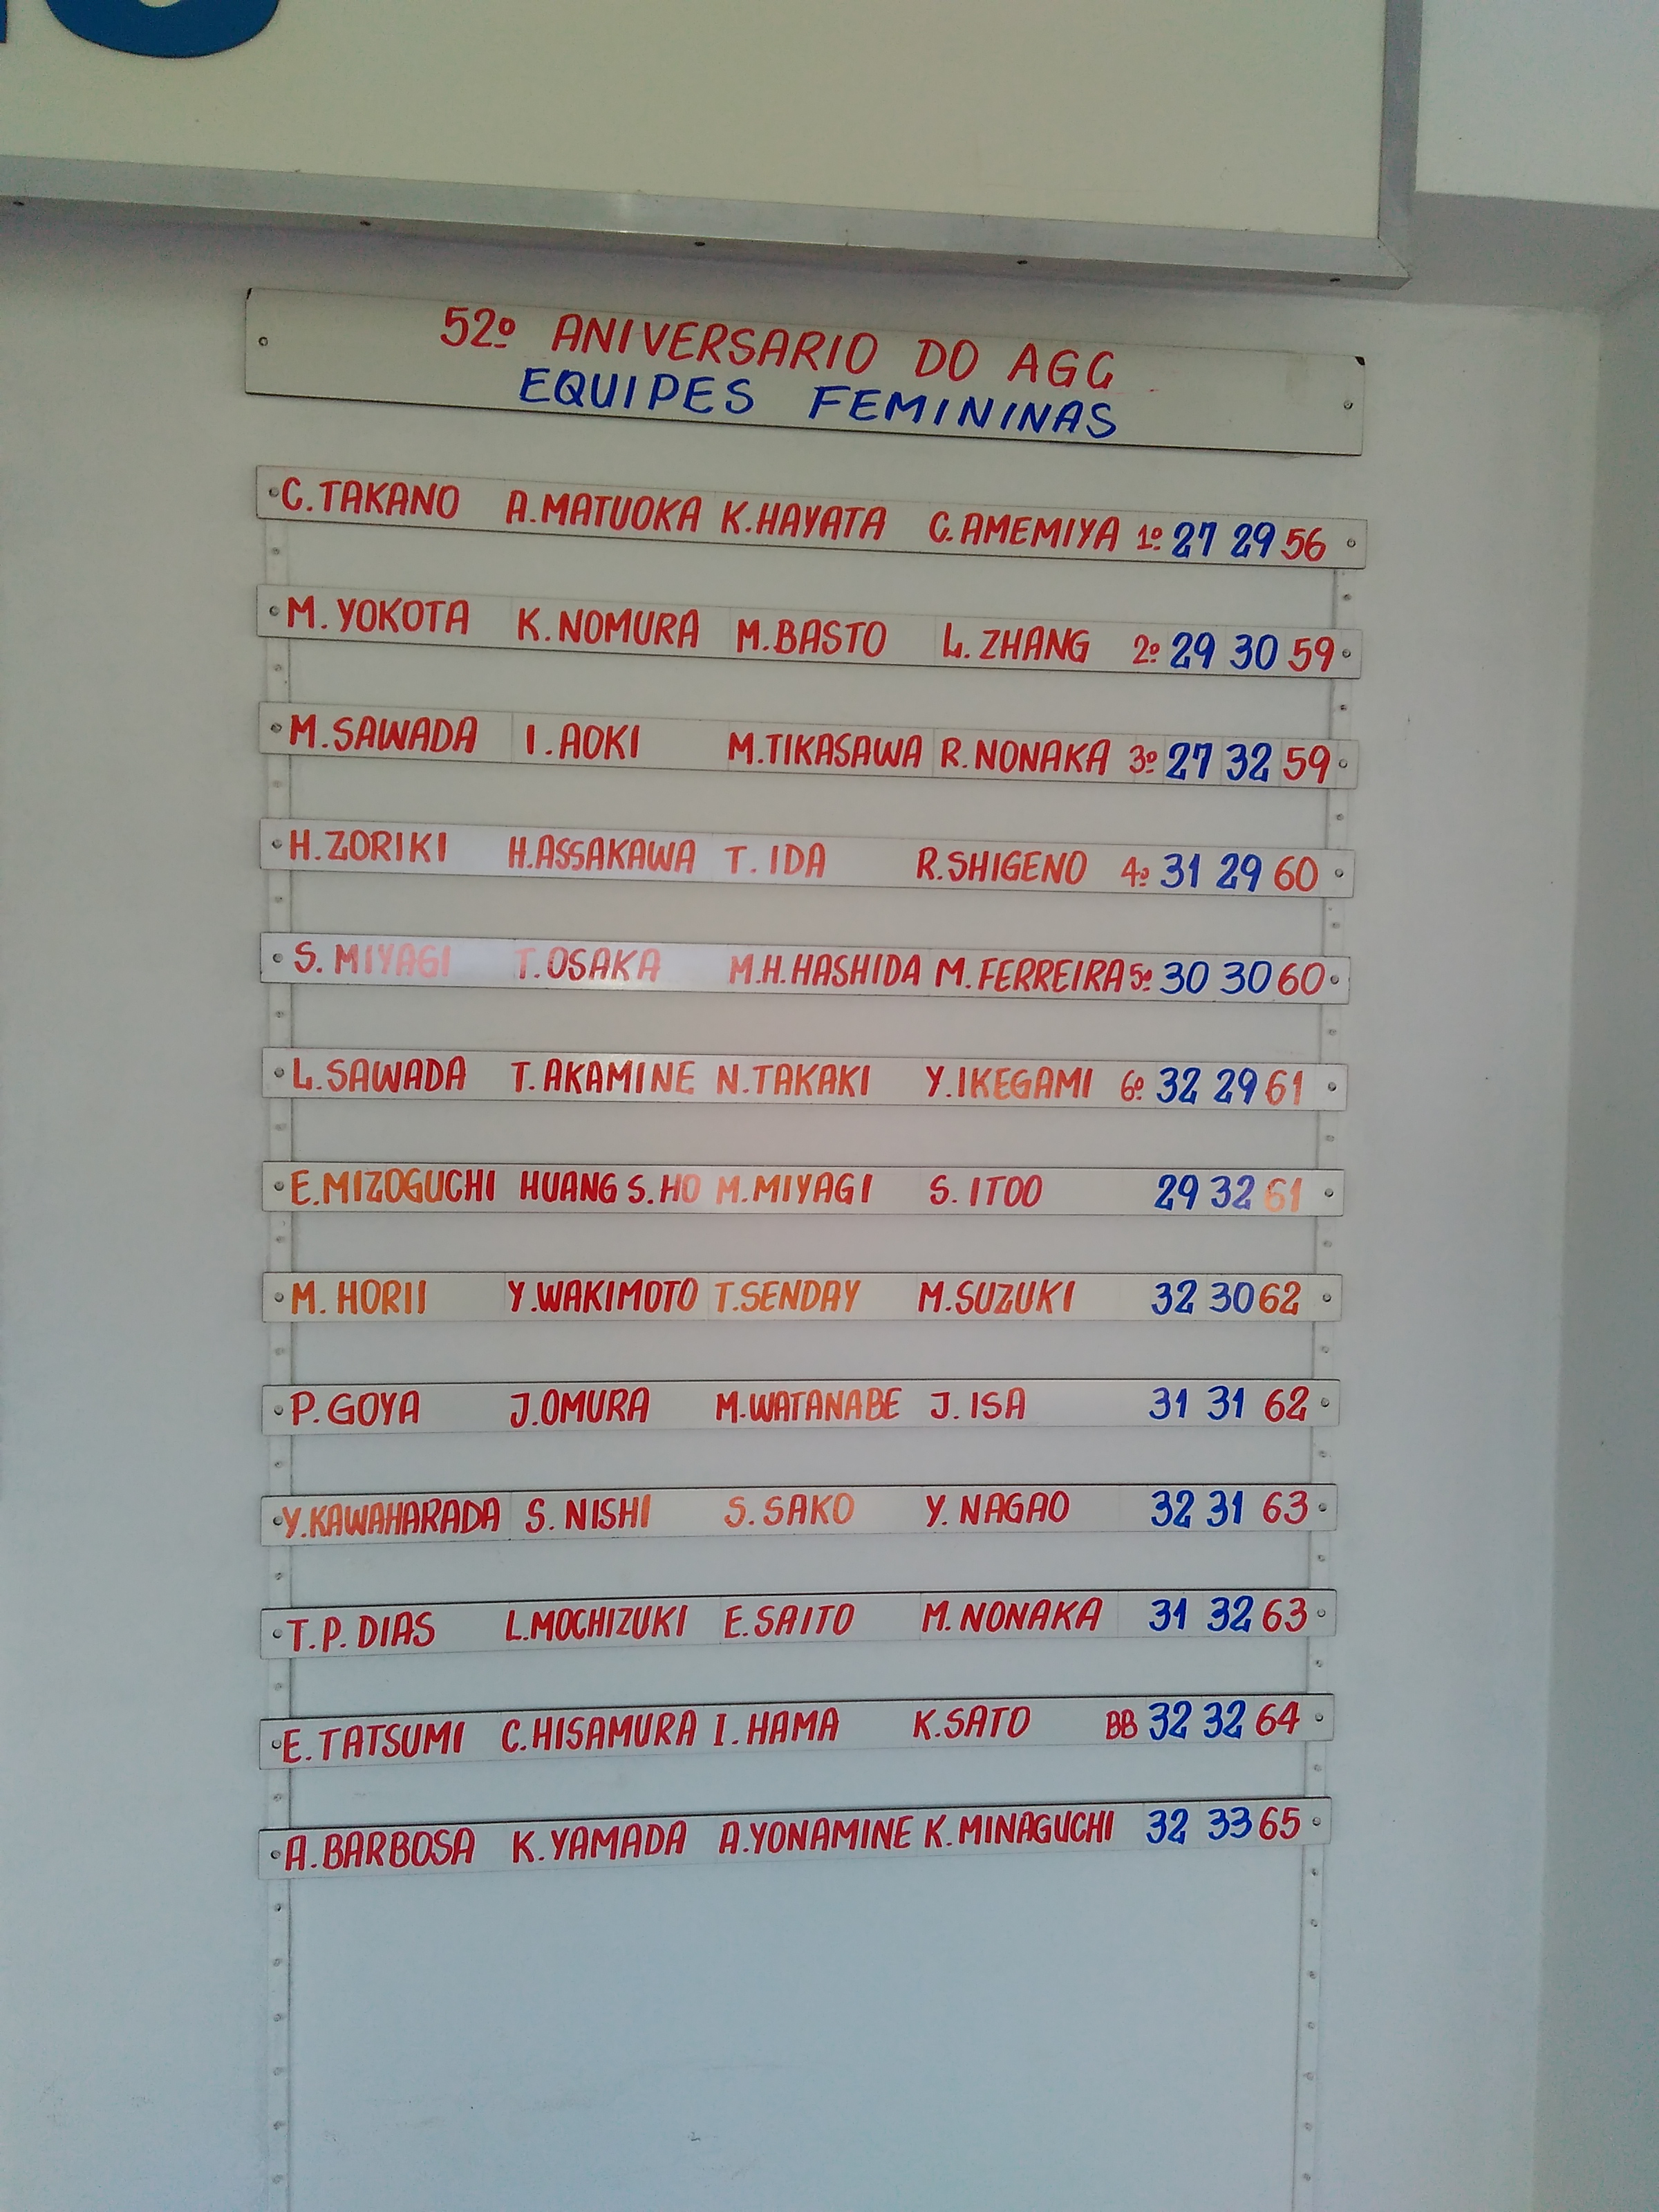 52º ANIVERSARIO DO AGC
EQUIPES FEMININAS
C.TAKANO A.MATUOKA K.HAYATA C.AMEMIYA 1º 27 29 56
M.YOKOTA K.NOMURA M.BASTO L.ZHANG 2º 29 30 59
M.SAWADA I.AOKI M.TIKASAWA R.NONAKA 3º 27 32 59
H.ZORIKI H.ASSAKAWA T.IDA R.SHIGENO 4º 31 29 60
S.MIYAGI T.OSAKA M.H.HASHIDA M.FERREIRA 5º 30 30 60
L.SAWADA T.AKAMINE N.TAKAKI Y.IKEGAMI 6º 32 29 61
E.MIZOGUCHI HUANG S.HO M.MIYAGI S.ITOO 29 32 61
M.HORII Y.WAKIMOTO T.SENDAY M.SUZUKI 32 30 62
P.GOYA J.OMURA M.WATANABE J.ISA 31 31 62
Y.KAWAHARADA S.NISHI S.SAKO Y.NAGAO 32 31 63
T.P.DIAS L.MOCHIZUKI E.SAITO M.NONAKA 31 32 63
E.TATSUMI C.HISAMURA I.HAMA K.SATO BB 32 32 64
A.BARBOSA K.YAMADA A.YONAMINE K.MINAGUCHI 32 33 65